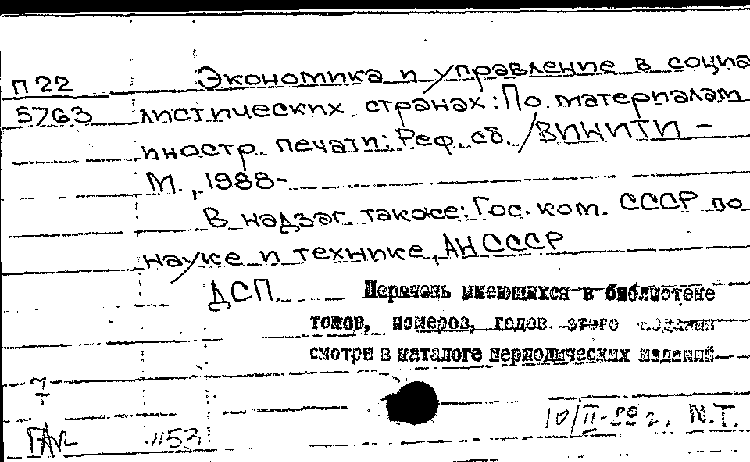 П 22 Экономика и управление в социа
5763 листических странах: По материалам
иностр. печати: Реф. сб. / ВИНИТИ –
М., 1988-
В надзаг. также: Гос. ком. СССР по
науке и технике, АН СССР
ДСП Перечень имеющихся в библиотеке
томов, номеров, годов этого издания
смотри в каталоге периодических изданий
1153